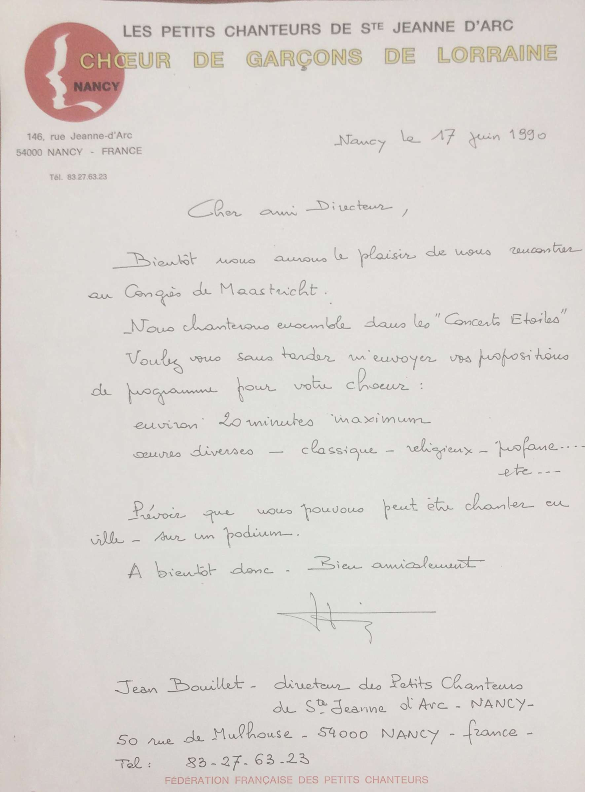 LES PETITS CHANTEURS DE STE JEANNE D'ARC
CHŒUR DE GARÇONS DE LORRAINE
NANCY
146, rue Jeanne-d'Arc
54000 NANCY - FRANCE
Tél. 83.27.63.23
Nancy le 17 juin 1990
Cher ami Directeur,
Bientôt nous aurons le plaisir de nous rencontrer
au Congrès de Maastricht.
Nous chanterons ensemble dans les "Concerts Etoiles"
Voulez vous sans tarder m'envoyer vos propositions
de programme pour votre chœur :
environ 20 minutes maximum
œuvres diverses - classique - religieux - profane....
etc ---
Prévoir que nous pouvons peut être chanter en
ville - sur un podium.
A bientôt donc - Bien amicalement
Jean Bouillet - directeur des Petits Chanteurs
de Ste Jeanne d'Arc - NANCY-
50 rue de Mulhouse - 54000 NANCY - france -
Tel : 83-27-63-23
FÉDÉRATION FRANÇAISE DES PETITS CHANTEURS